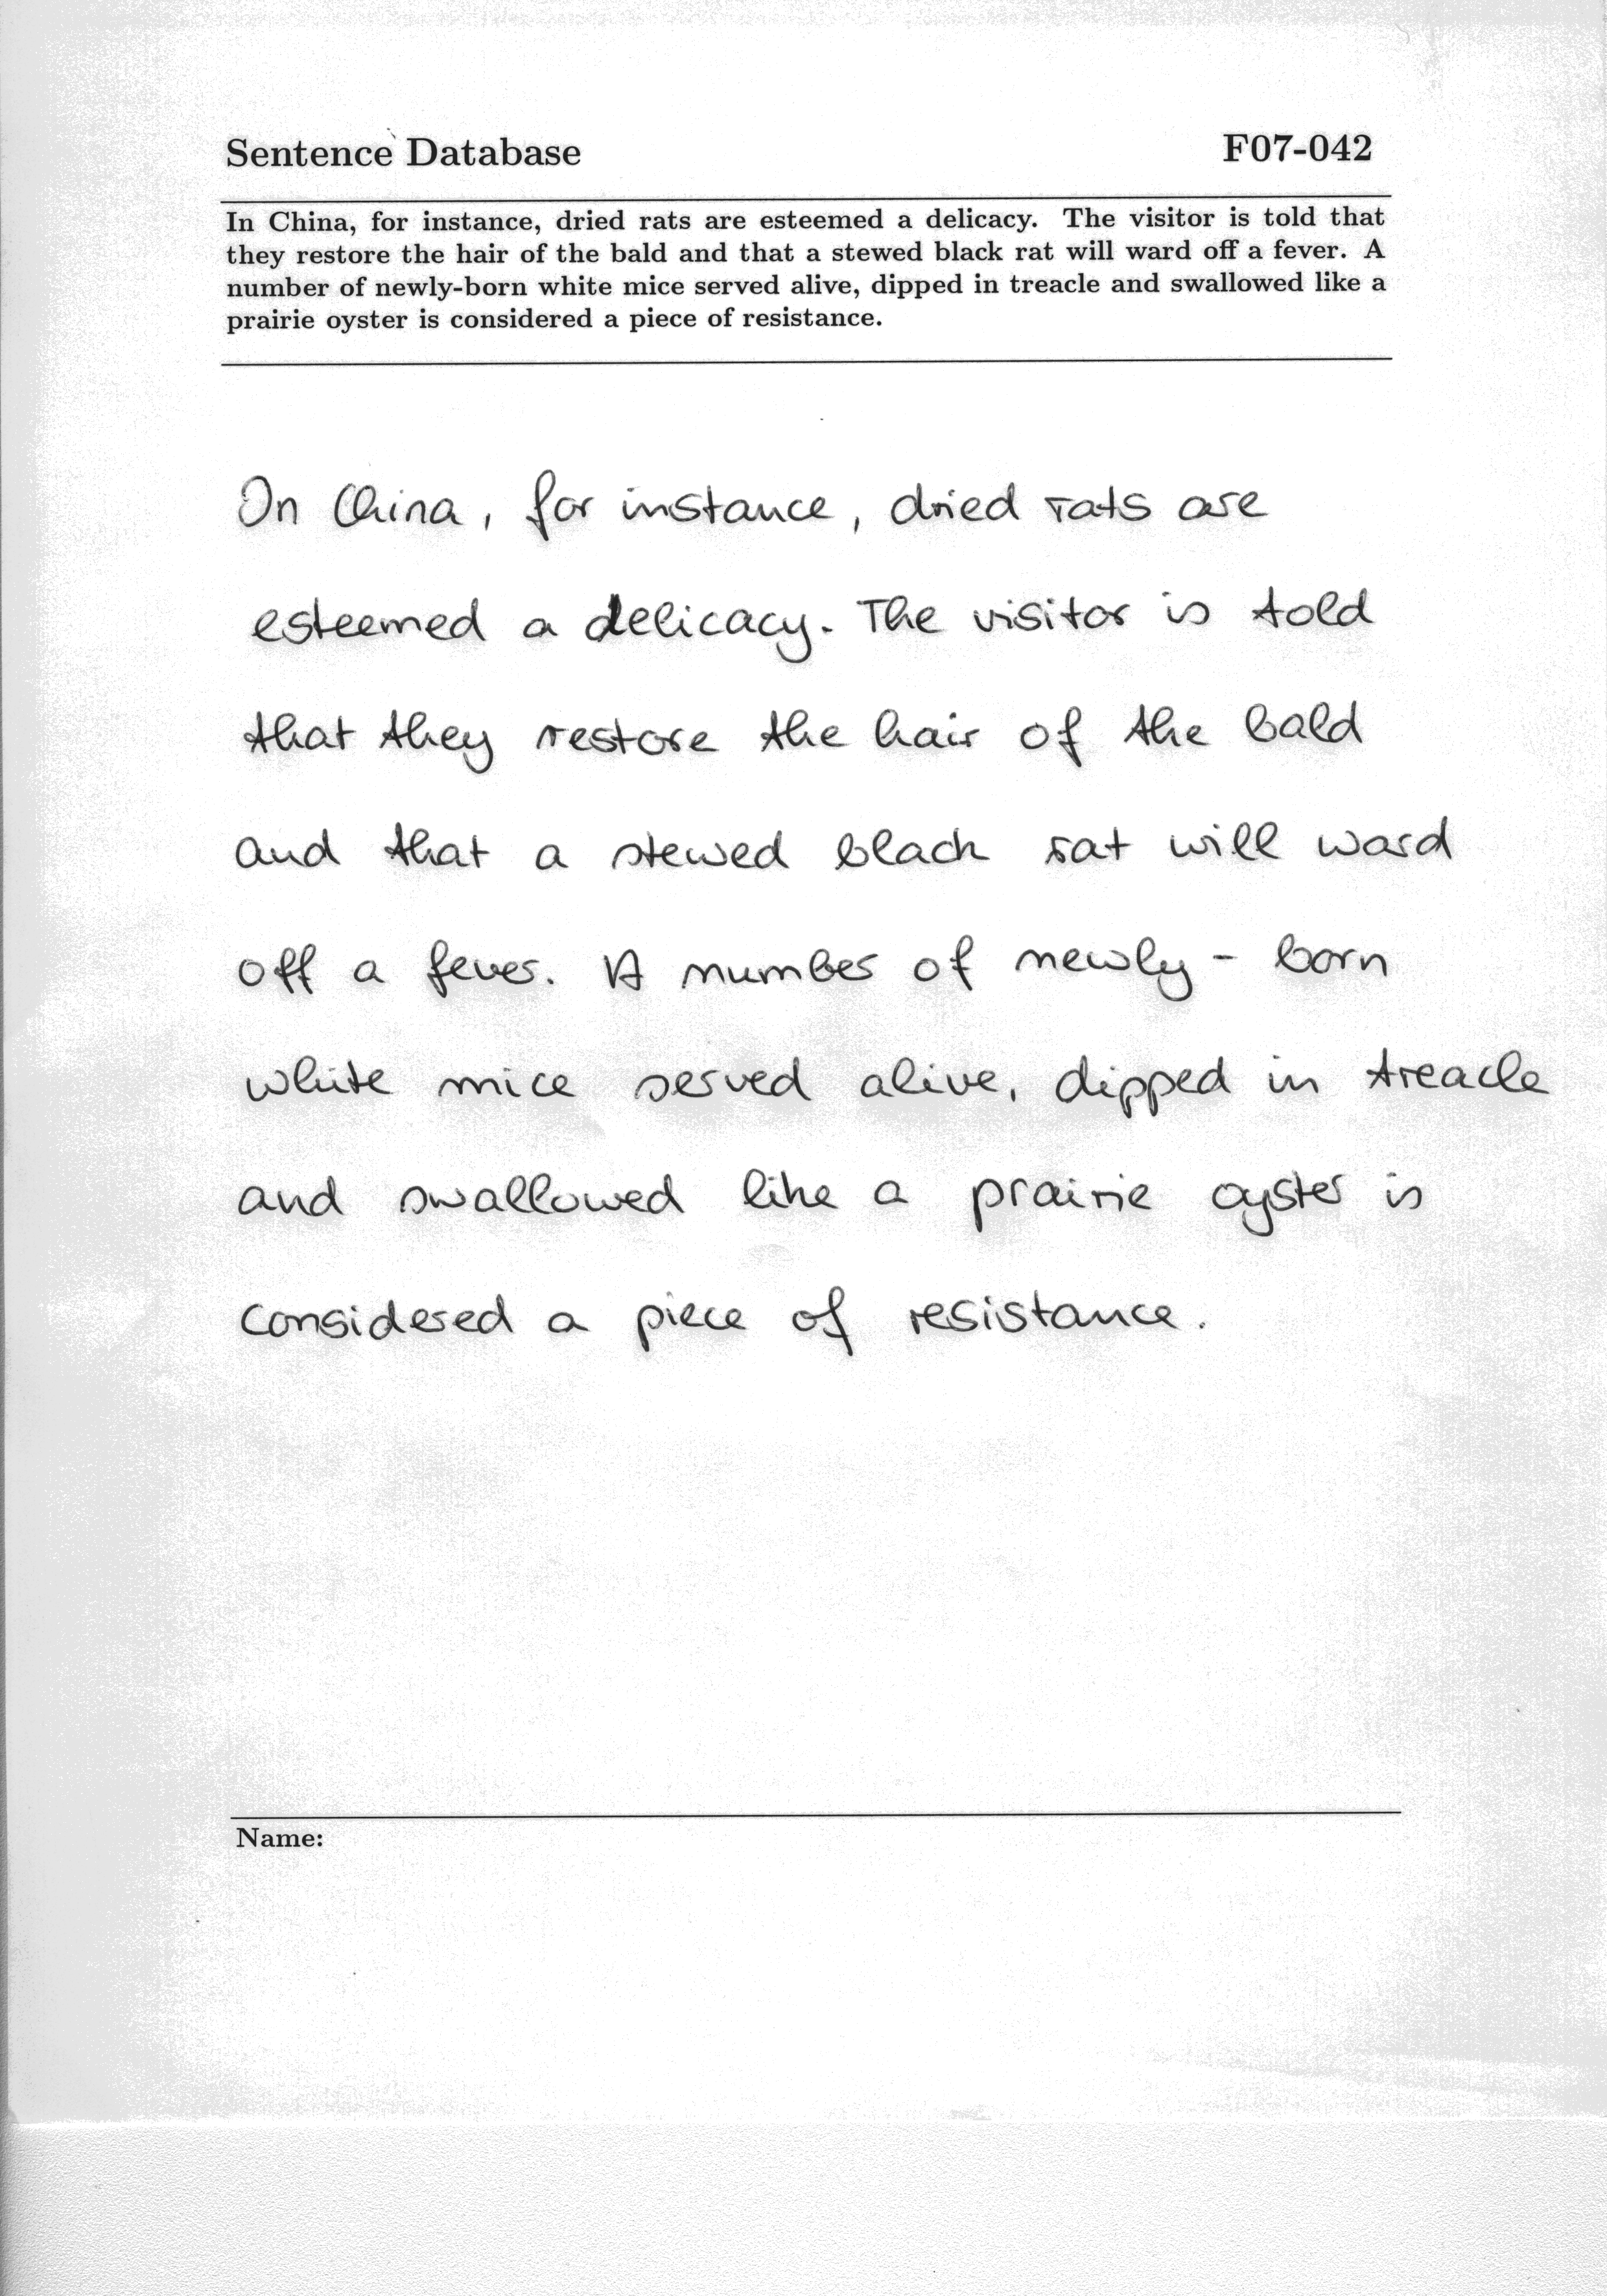 Sentence Database F07-042
In China, for instance, dried rats are esteemed a delicacy. The visitor is told that
they restore the hair of the bald and that a stewed black rat will ward off a fever. A
number of newly-born white mice served alive, dipped in treacle and swallowed like a
prairie oyster is considered a piece of resistance.
In China, for instance, dried rats are
esteemed a delicacy. The visitor is told
that they restore the hair of the bald
and that a stewed black rat will ward
off a fever. A number of newly - born
white mice served alive, dipped in treacle
and swallowed like a prairie oyster is
considered a piece of resistance.
Name: